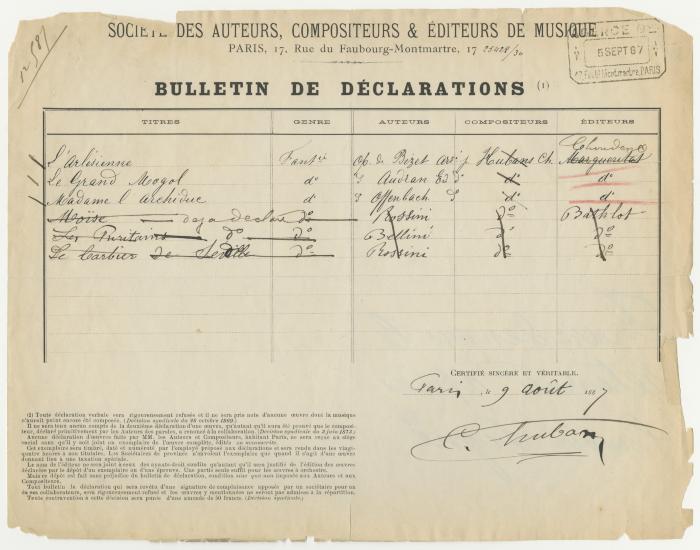 12587
SOCIÉTÉ DES AUTEURS, COMPOSITEURS & ÉDITEURS DE MUSIQUE
PARIS, 17, Rue du Faubourg-Montmartre, 17
AGENCE
5 SEPT 87
17 Faub Montmartre, PARIS
BULLETIN DE DÉCLARATIONS (1)
TITRES GENRE AUTEURS COMPOSITEURS ÉDITEURS
Choudens
L'Arlésienne Fant sie Ob. de Bizet arr. Hubans Ch. Margueritat
Le Grand Mogol do Audran Ed do do
Madame l'archiduc do Offenbach do do
Moïse deja declaré do Rossini do Bathlot
Les Puritains do do Bellini do do
Le Barbier de Séville do Rossini do do
CERTIFIÉ SINCÈRE ET VÉRITABLE.
Paris, le 9 août 1887
C. Hubans
(1) Toute déclaration verbale sera rigoureusement refusée et il ne sera pris note d'aucune œuvre dont la musique
n'aurait point encore été composée. (Décision syndicale du 26 octobre 1869)
Il ne sera tenu aucun compte de la deuxième déclaration d'une œuvre, qu'autant qu'il aura été prouvé que le composi-
teur, déclaré primitivement par les Auteurs des paroles, a renoncé à la collaboration. (Décision syndicale du 3 juin 1872.)
Aucune déclaration d'œuvres faite par MM. les Auteurs et Compositeurs, habitant Paris, ne sera reçue au siège
social sans qu'il y soit joint un exemplaire de l'œuvre complète, édité ou manuscrite.
Cet exemplaire sera timbré, daté et numéroté par l'employé préposé aux déclarations et sera rendu dans les vingt-
quatre heures à son titulaire. Les Sociétaires de province n'auront l'exemplaire que quand il s'agira d'une œuvre
donnant lieu à une taxation spéciale.
Le nom de l'éditeur ne sera joint à ceux des ayants-droit susdits qu'autant qu'il sera justifié de l'édition des œuvres
déclarées par le dépôt d'un exemplaire ou d'une épreuve. Une partie seule suffit pour les œuvres à orchestre.
Mais ce dépôt est fait sans préjudice du bulletin de déclaration, condition sine qua non imposée aux Auteurs et aux
Compositeurs.
Tout bulletin de déclaration qui sera revêtu d'une signature de complaisance apposée par un sociétaire pour un
de ses collaborateurs, sera rigoureusement refusé et les œuvres y mentionnées ne seront pas admises à la répartition.
Toute contravention à cette décision sera punie d'une amende de 50 francs. (Décision syndicale.)